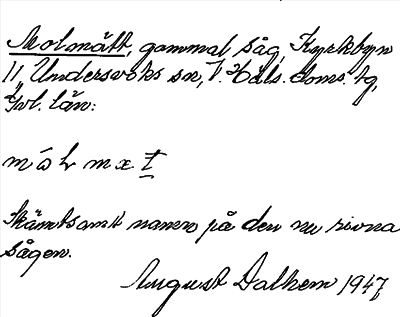 Molmätt, gammal såg, Kyrkbyn
11, Undersviks sn, V. Häls. doms. tg,
Gvl. län:
m ó l m x t
Skämtsamt namn på den nu rivna
sågen.
August Dalhem 1947